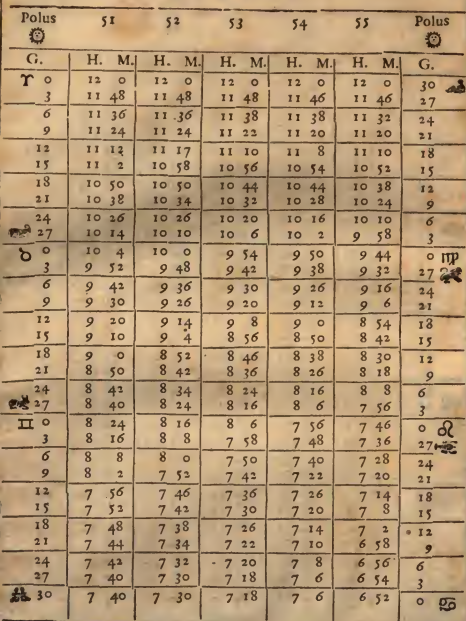 Polus 51 52 53 54 55 Polus
G. H. M. H. M. H. M. H. M. H. M. G.
♈ 0 12 0 12 0 12 0 12 0 12 0 30
3 11 48 11 48 11 48 11 46 11 46 27
6 11 36 11 36 11 38 11 38 11 32 24
9 11 24 11 24 11 22 11 20 11 20 21
12 11 13 11 17 11 10 11 8 11 10 18
15 11 2 10 58 10 56 10 54 10 52 15
18 10 50 10 50 10 44 10 44 10 38 12
21 10 38 10 34 10 32 10 28 10 24 9
24 10 26 10 26 10 20 10 16 10 10 6
27 10 14 10 10 10 6 10 2 9 58 3
♉ 0 10 4 10 0 9 54 9 50 9 44 0 ♍
3 9 52 9 48 9 42 9 38 9 32 27
6 9 42 9 36 9 30 9 26 9 16 24
9 9 30 9 26 9 20 9 12 9 6 21
12 9 20 9 14 9 8 9 0 8 54 18
15 9 10 9 4 8 56 8 50 8 42 15
18 9 0 8 52 8 46 8 38 8 30 12
21 8 50 8 42 8 36 8 26 8 18 9
24 8 42 8 34 8 24 8 16 8 8 6
27 8 40 8 24 8 16 8 6 7 56 3
♊ 0 8 24 8 16 8 6 7 56 7 46 0 ♌
3 8 16 8 8 7 58 7 48 7 36 27
6 8 8 8 0 7 50 7 40 7 28 24
9 8 2 7 52 7 42 7 22 7 20 21
12 7 56 7 46 7 36 7 26 7 14 18
15 7 52 7 42 7 30 7 20 7 8 15
18 7 48 7 38 7 26 7 14 7 2 12
21 7 44 7 34 7 22 7 10 6 58 9
24 7 42 7 32 7 20 7 8 6 56 6
27 7 40 7 30 7 18 7 6 6 54 3
30 7 40 7 30 7 18 7 6 6 52 0 ♋